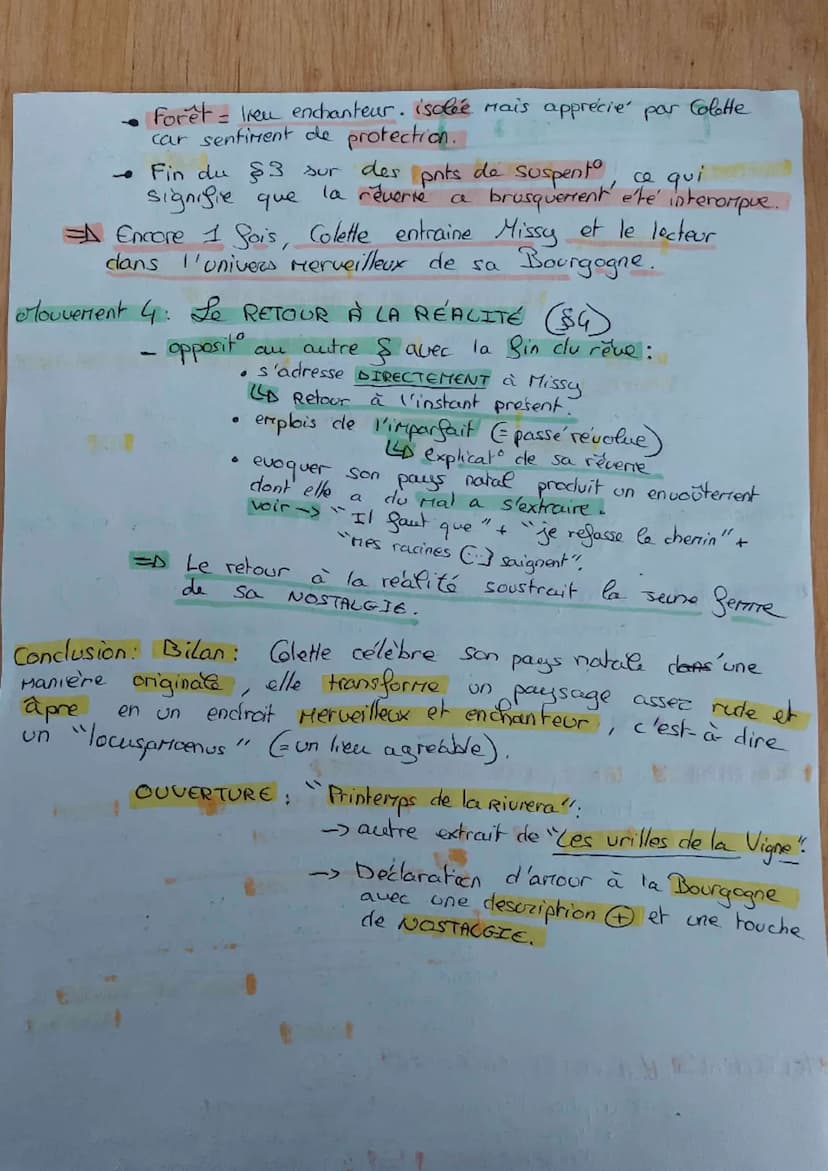 • Forêt = lieu enchanteur. isolée mais apprécié par Colette
car sentiment de protection.
→ Fin du §3 sur des pnts de suspent°, ce qui
signifie que la rêverie a brusquement été interompue.
⇒ Encore 1 fois, Colette entraine Missy et le lecteur
dans l'univers merveilleux de sa Bourgogne.
Mouvement 4: Le RETOUR À LA RÉALITÉ (§4)
- opposit° au autre § avec la fin du rêve :
• s'adresse DIRECTEMENT à Missy
↳ Retour à l'instant present.
• emplois de l'imparfait (= passé révolue)
↳ explicat° de sa rêverie
• evoquer son pays natal produit un envoûtement
dont elle a du mal a s'extraire.
voir → "Il faut que" + "je refasse le chemin" +
"mes racines (...) saignent".
⇒ Le retour à la réalité soustrait la jeune femme
de sa NOSTALGIE.
Conclusion: Bilan: Colette célèbre son pays natale d'une
manière originale, elle transforme un paysage assez rude et
âpre en un endroit merveilleux et enchanteur, c'est-à dire
un "locusamoenus" (= un lieu agréable).
OUVERTURE : "Printemps de la Riviera":
→ autre extrait de "Les vrilles de la Vigne".
→ Déclaration d'amour à la Bourgogne
avec une description ⊕ et une touche
de NOSTALGIE.